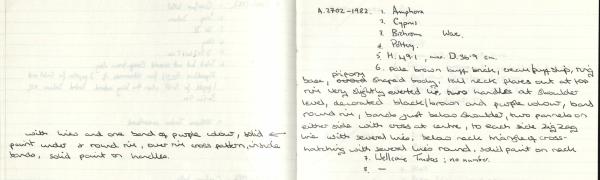 A.2702-1982.
1. Amphora
2. Cyprus
3. Bichrome Ware.
4. Pottery.
5. H. 49.1, max. D. 36.9 cm.
6. pale brown buff brick, cream buff slip, ring
base, piriform shaped body, tall neck flares out at top
rim very slightly everted lip, two handles at shoulder
level, decorated black/brown and purple colour, band
round rim, bands just below shoulder, two pannels on
either side with cross at centre, to each side zig zag
line with several lines, below neck triangles, cross-
hatching with several lines round, solid paint on neck
7. Wellcome Trustees; no number.
8. —
with lines and one band of purple colour, solid
paint under & round rim, over rim cross pattern, inside
bands, solid paint on handles.